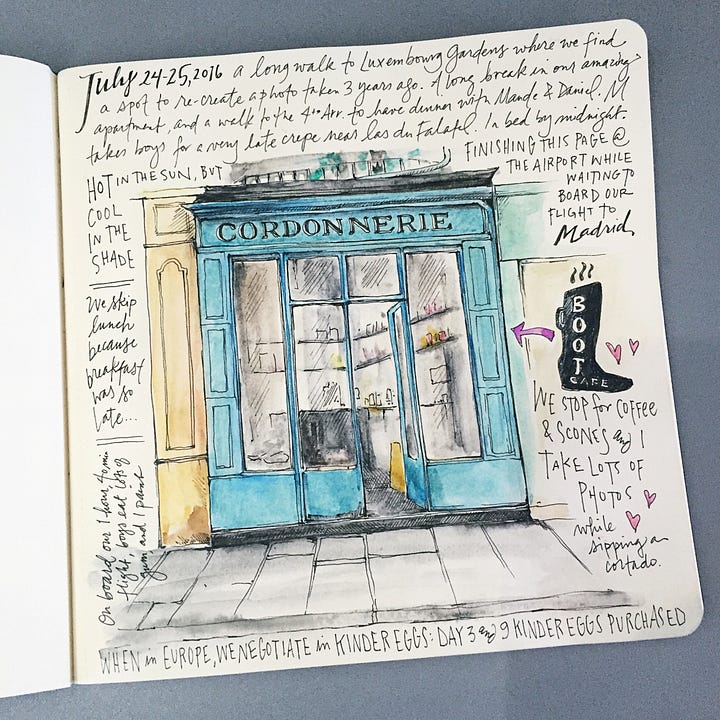 July 24-25, 2016 a long walk to Luxembourg Gardens where we find
a spot to re-create a photo taken 3 years ago. A long break in our amazing
apartment, and a walk to the 4th Arr. to have dinner with Mande & Daniel. M
takes boys for a very late crepe near Las du Falafel. In bed by midnight.
HOT IN THE SUN, BUT
COOL
IN THE
SHADE
We skip
lunch
because
breakfast
was so
late...
On board our 1 hour, 40 min
flight, boys eat lots of
gum and I paint
FINISHING THIS PAGE @
THE AIRPORT WHILE
WAITING TO
BOARD OUR
FLIGHT TO
Madrid
CORDONNERIE
BOOT
CAFE
WE STOP for COFFEE
& SCONES and I
TAKE LOTS OF
PHOTOS
while
sipping a
cortado.
WHEN in EUROPE, WE NEGOTIATE in KINDER EGGS: DAY 3 and 9 KINDER EGGS PURCHASED